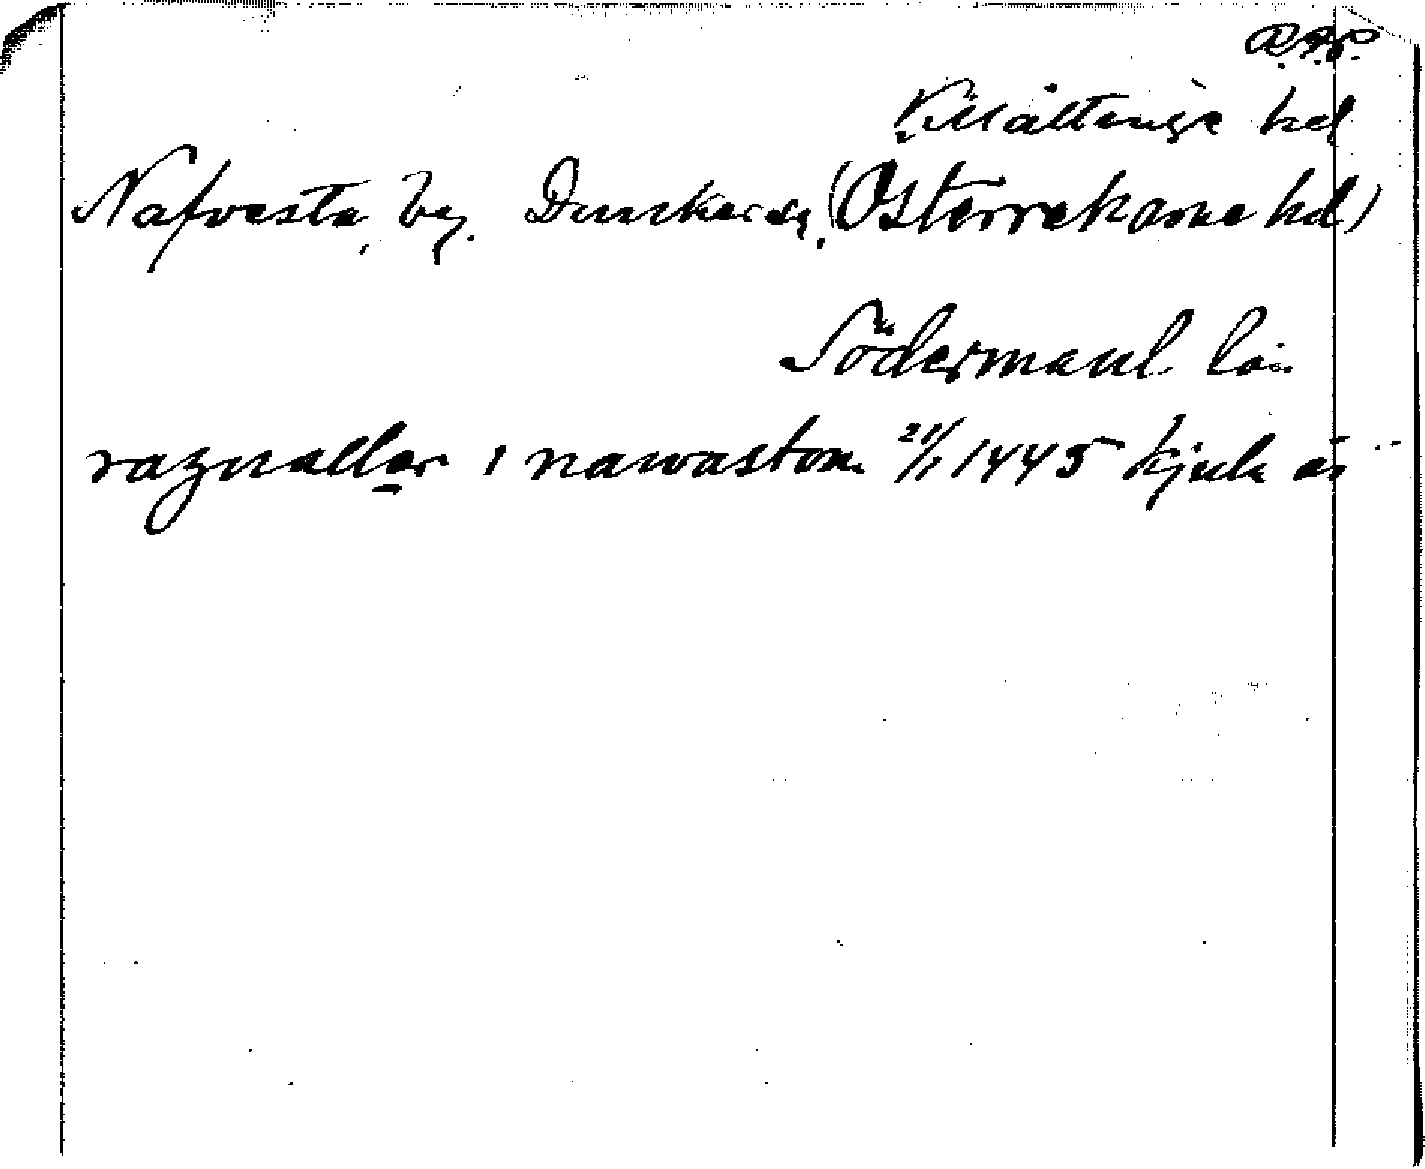 Villåttinge hd
Nafvesta, by. Dunker sn, (Österrekarne hd)
Södermanl. län
ragnaller i nawastom 21/1 1445 Hjulsta